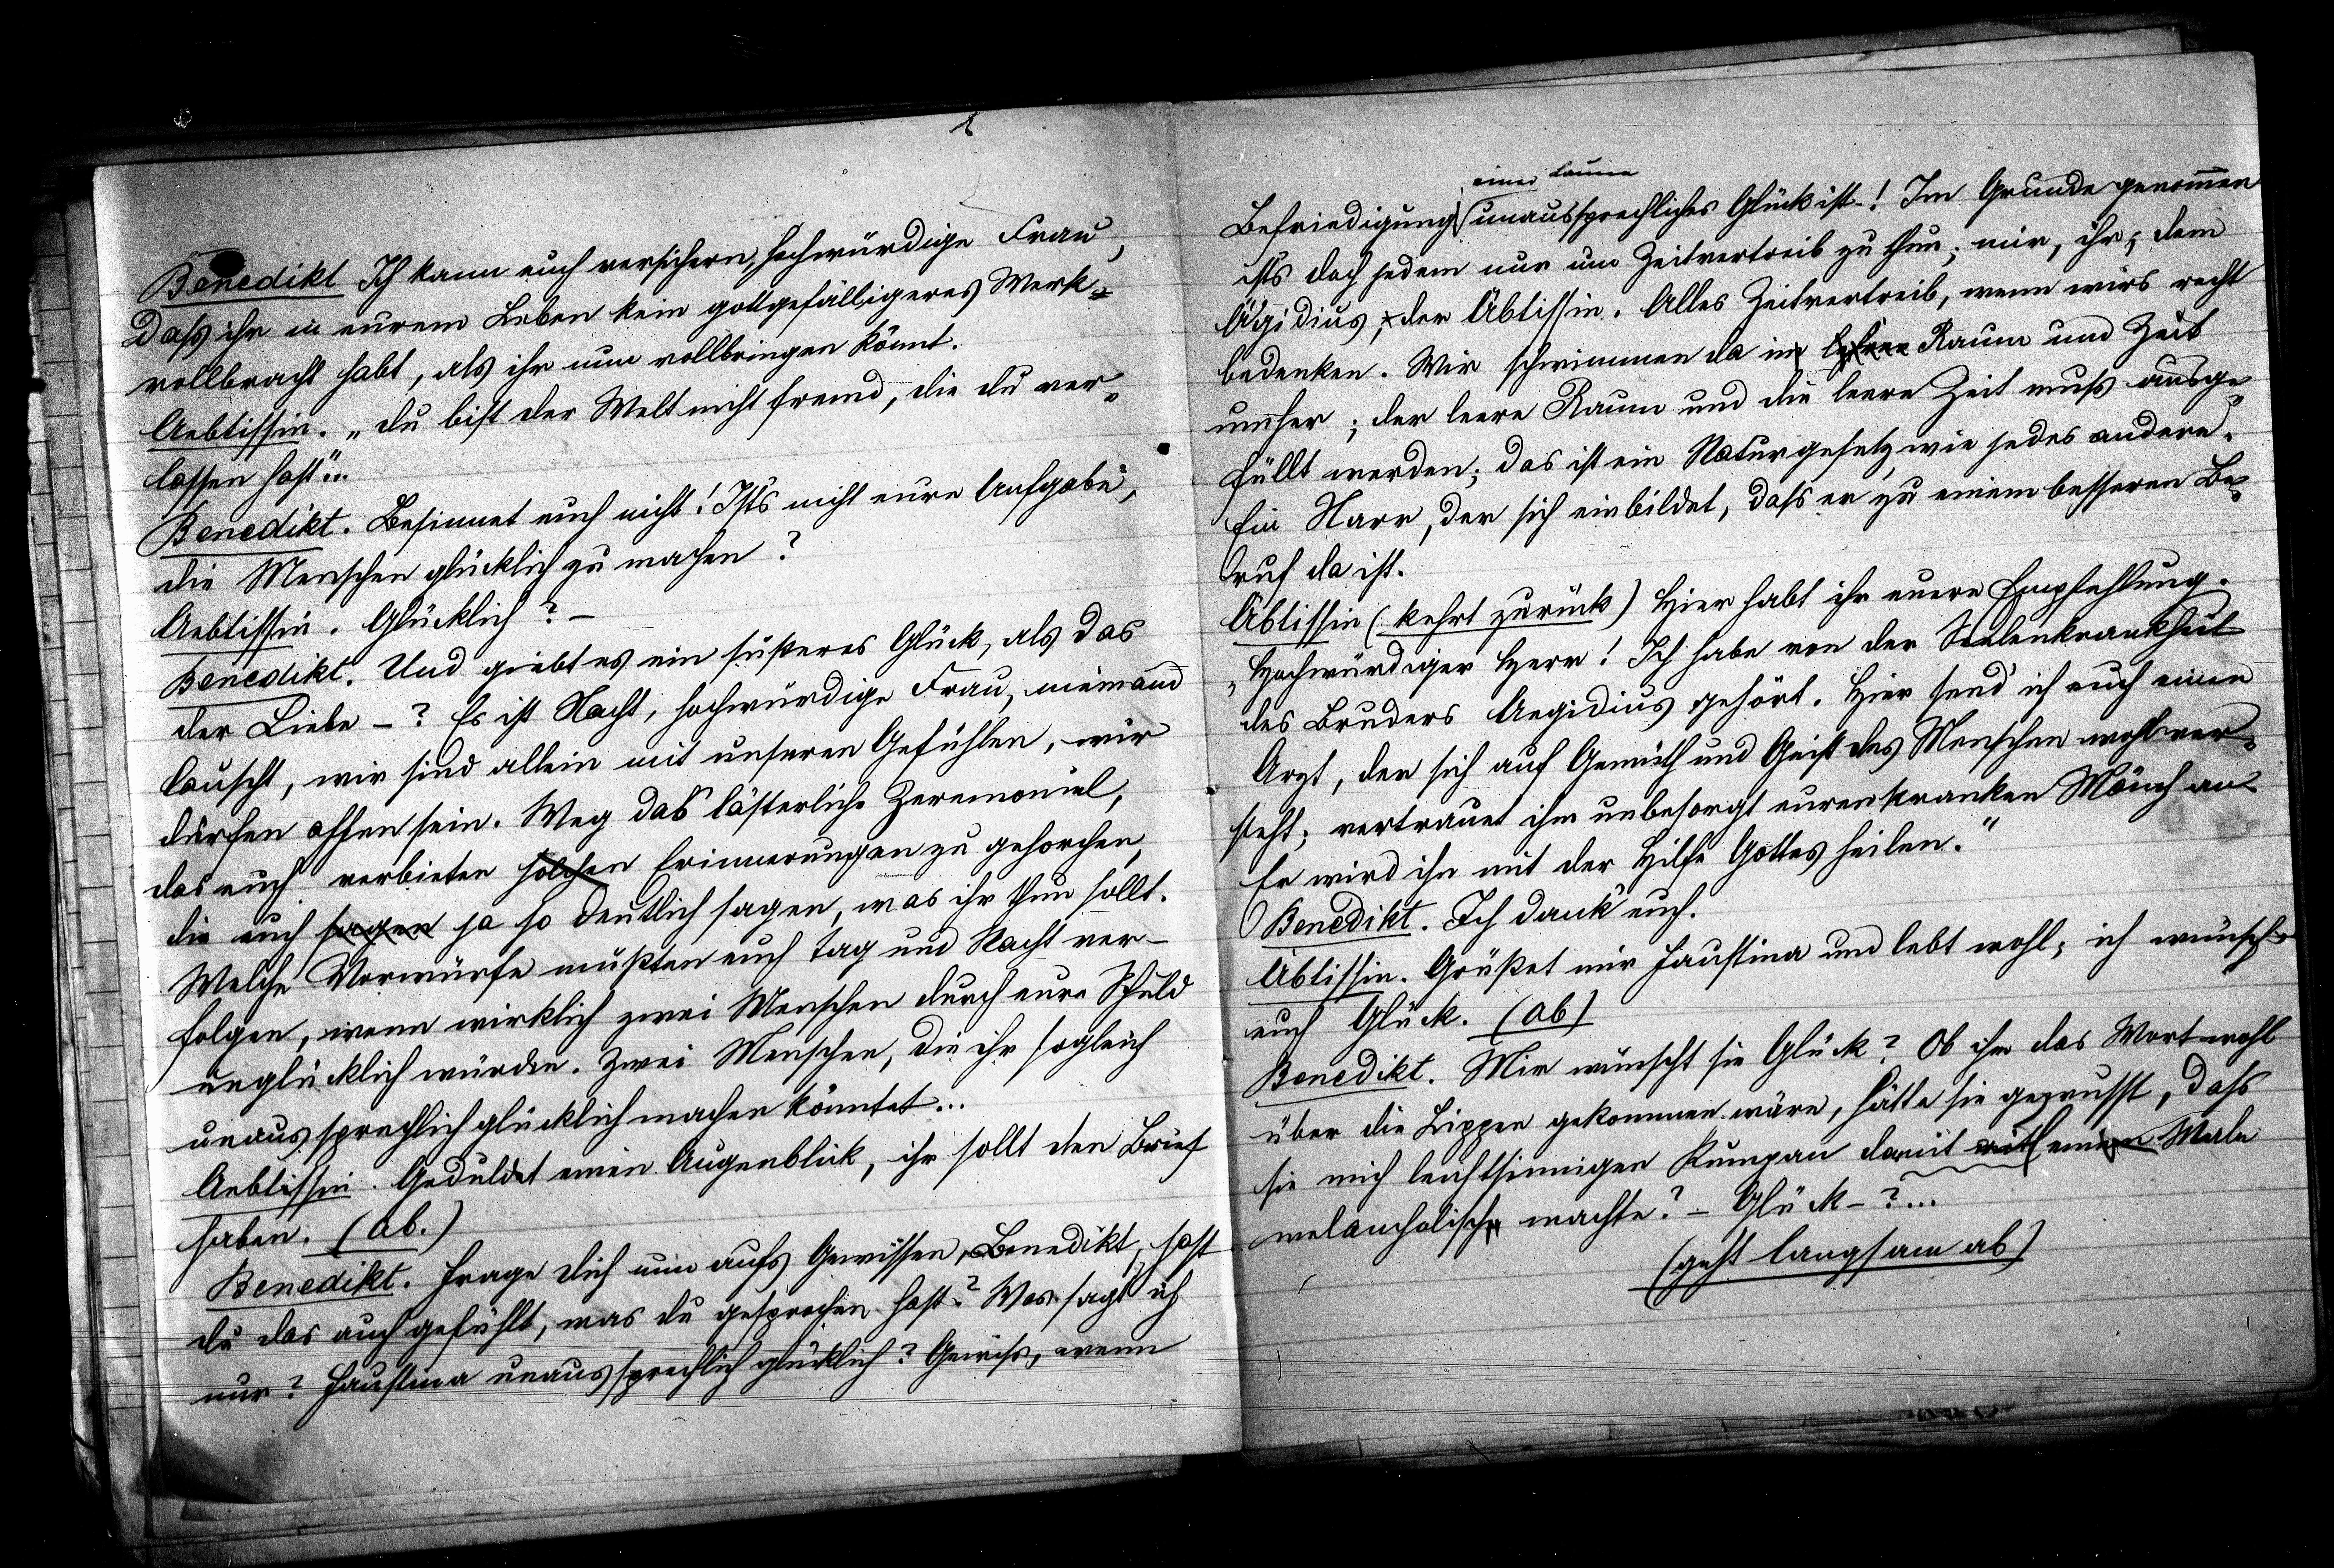 Benedikt Ich kann euch versichern, hochwürdige Frau,
daß ihr in eurem Leben kein gottgefälligeres Werk
vollbracht habt, als ihr nun vollbringen könnt.
Aebtissin. „du bist der Welt nicht fremd, die du ver-
lassen hast"...
Benedikt. Besinnet euch nicht! Ists nicht eure Aufgabe,
die Menschen glücklich zu machen?
Aebtissin. Glücklich? –
Benedikt. Und giebt es ein süßeres Glück, als das
der Liebe – ? Es ist Nacht, hochwürdige Frau, niemand
lauscht, wir sind allein mit unseren Gefühlen, wir
dürfen offen sein. Weg das lästerliche Zeremoniel,
das euch verbieten solchen Erinnerungen zu gehorchen,
die euch sagen ja so deutlich sagen, was ihr thun sollt.
Welche Vorwürfe müßten euch Tag und Nacht ver-
folgen, wenn wirklich zwei Menschen durch eure Schuld
unglücklich würden. Zwei Menschen, die ihr sogleich
unaussprechlich glücklich machen könntet...
Aebtissin. Geduldet einen Augenblick, ihr sollt den Brief
haben. (ab.)
Benedikt. Frage dich nun aufs Gewissen, Benedikt, hast
du das auch gefühlt, was du gesprochen hast? Was sagt ich
nur? Faustina unaussprechlich glücklich? Gewiß, wenn
einer Laune
Befriedigung unaussprechliches Glück ist –! Im Grunde genommen
ists doch jedem nur um Zeitvertreib zu thun; mir, ihr, dem
Ägidius, der Äbtissin. Alles Zeitvertreib, wenn wirs recht
bedenken. Wir schwimmen da im Raum und Zeit
umher; der leere Raum und die leere Zeit muß ausge-
füllt werden; das ist ein Naturgesetz, wie jedes andere.
Ein Narr, der sich einbildet, daß er zu einem besseren Be-
ruf da ist.
Äbtissin (kehrt zurück) Hier habt ihr euere Empfehlung.
„Hochwürdiger Herr! Ich habe von der Seelenkrankheit
des Bruders Aegidius gehört. Hier send' ich euch einen
Arzt, der sich auf Gemüth und Geist des Menschen wohl ver-
steht; vertrauet ihm unbesorgt euren kranken Mönch an.
Er wird ihn mit der Hilfe Gottes heilen."
Benedikt. Ich dank' euch.
Äbtissin. Grüßet mir Faustina und lebt wohl; ich wünsch
euch Glück. (ab)
Benedikt. Mir wünscht sie Glück? Ob ihr das Wort wohl
über die Lippen gekommen wäre, hätte sie gewusst, daß
sie mich leichtsinnigen Kumpan damit mit einem Male
melancholisch machte? – Glück – ?...
(geht langsam ab)